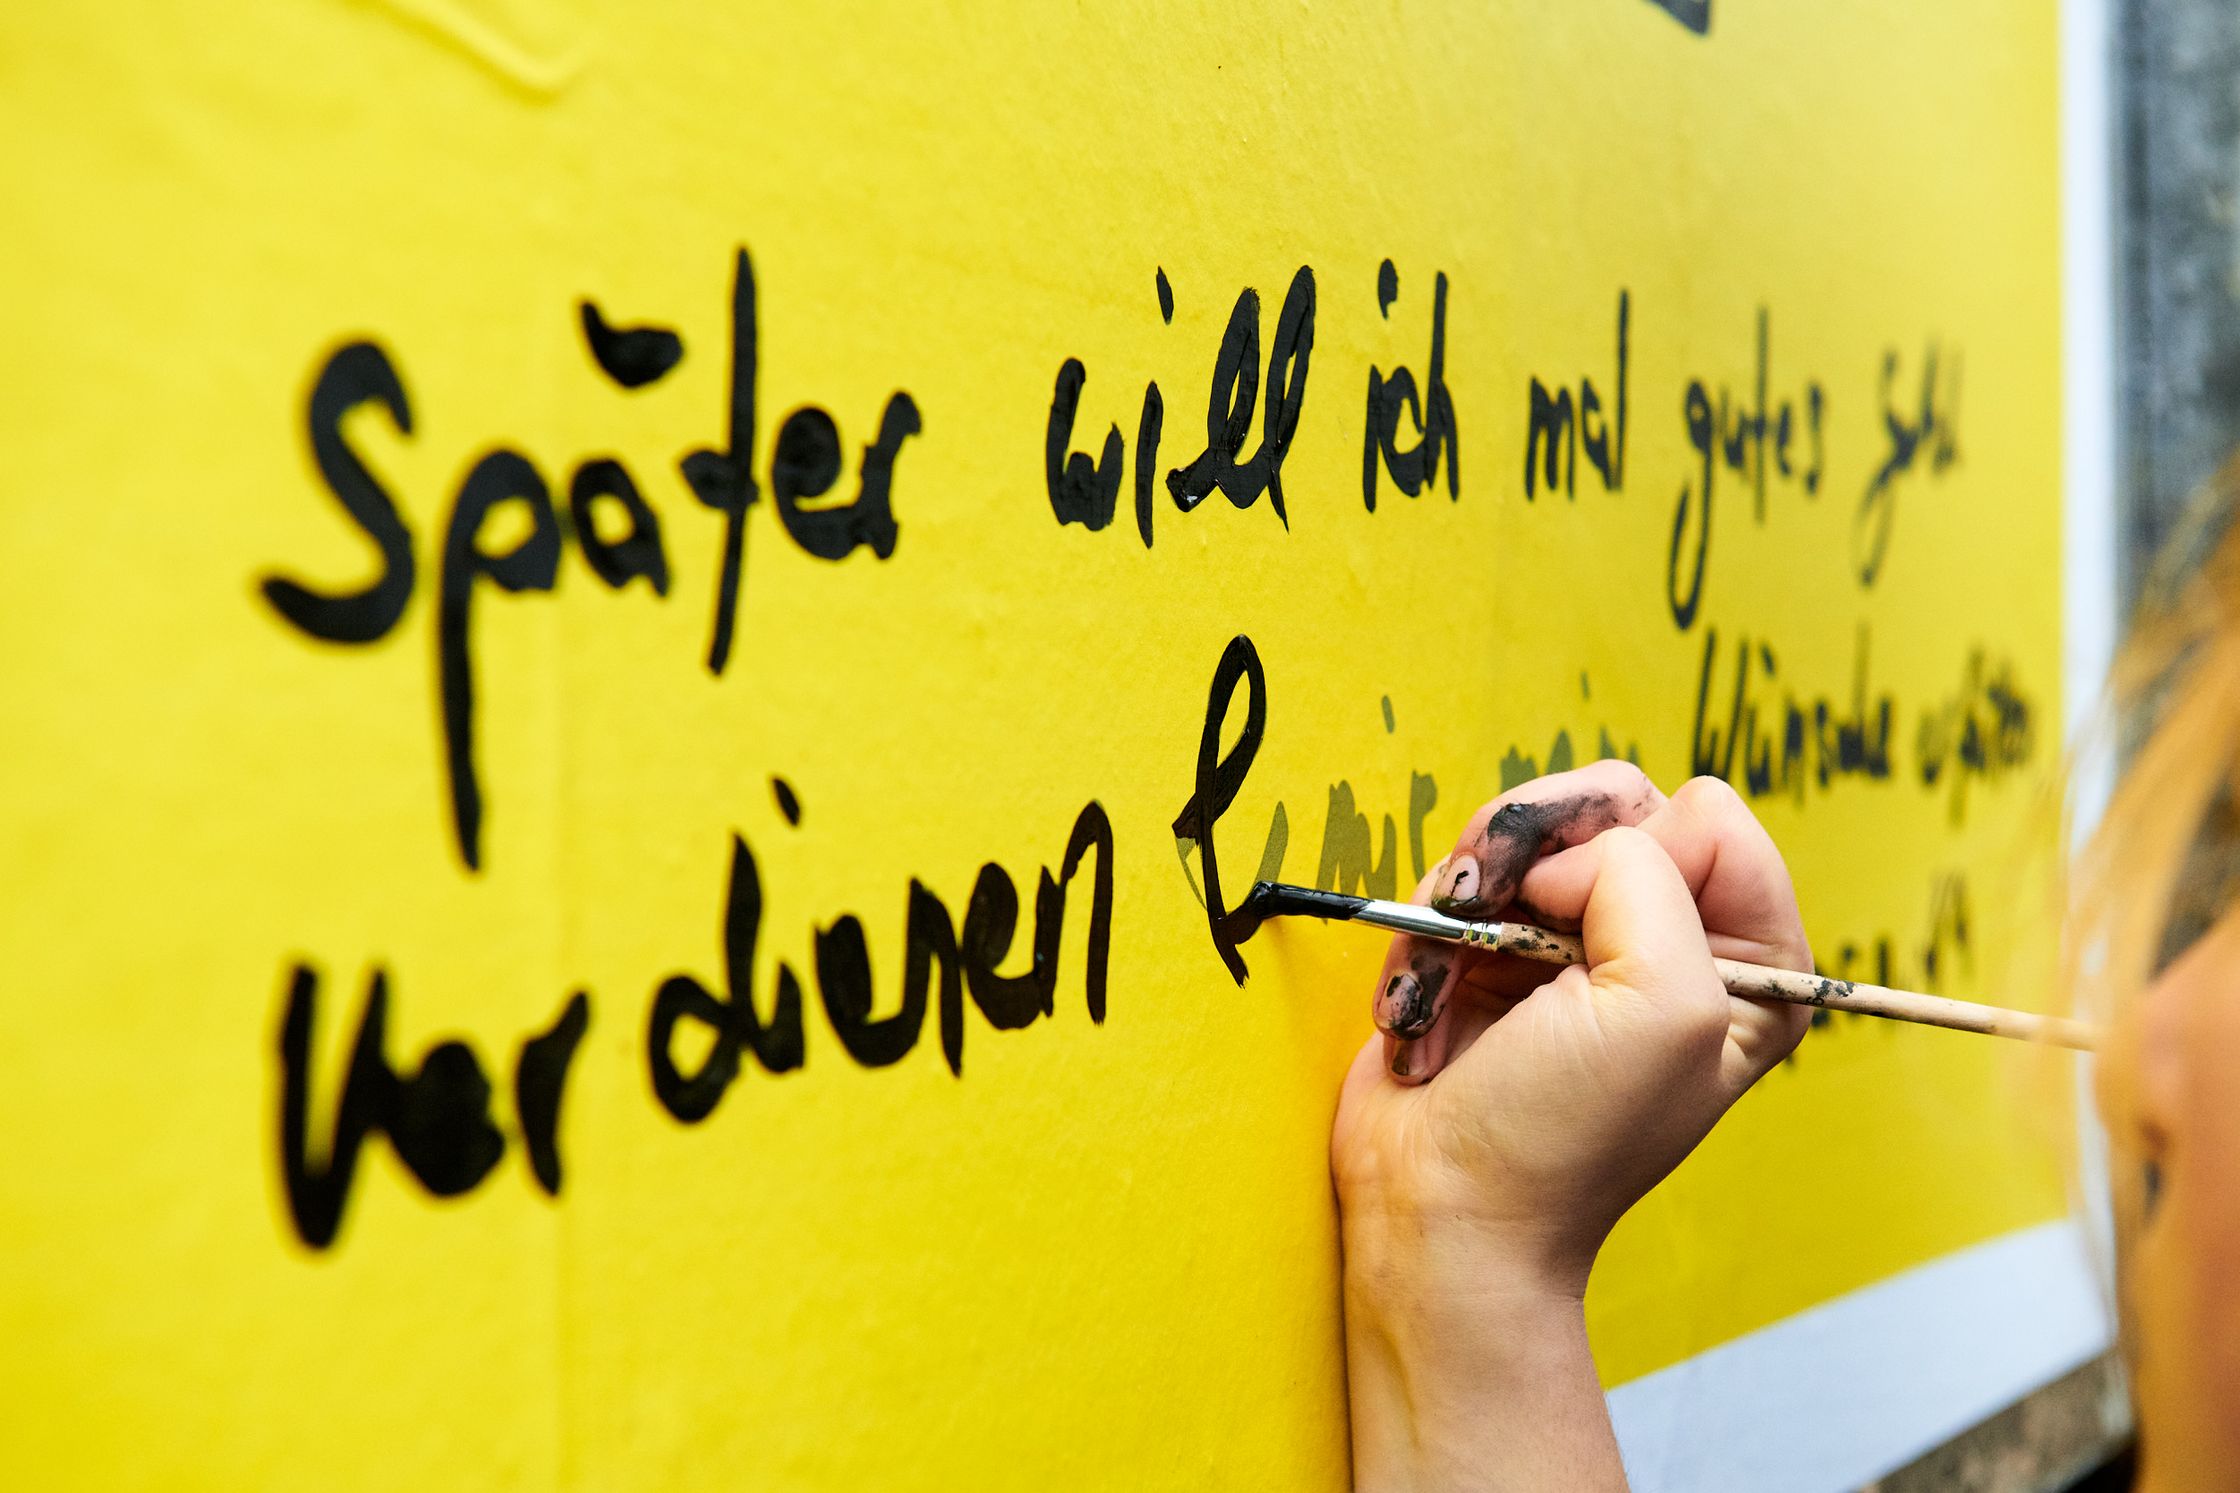 Später will ich mal gutes Geld
verdienen & mir mein Wünsche erfüllen